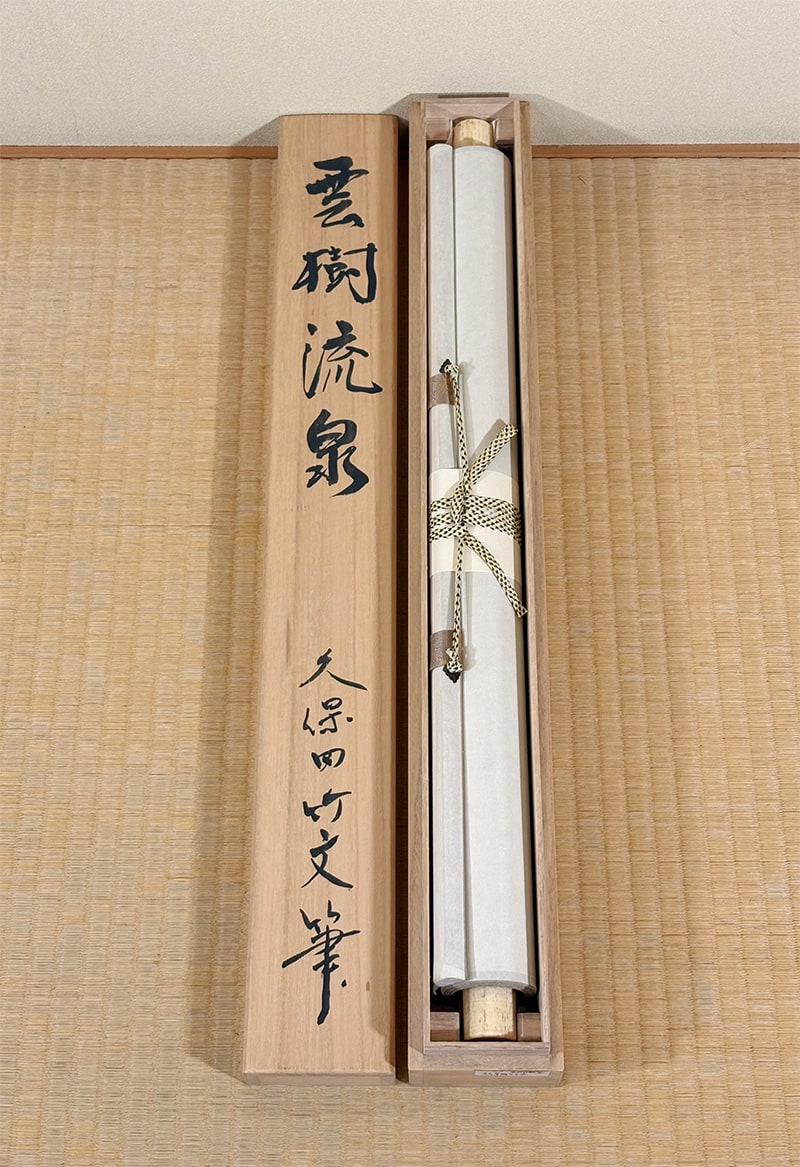 雲樹流泉
久保田竹文筆